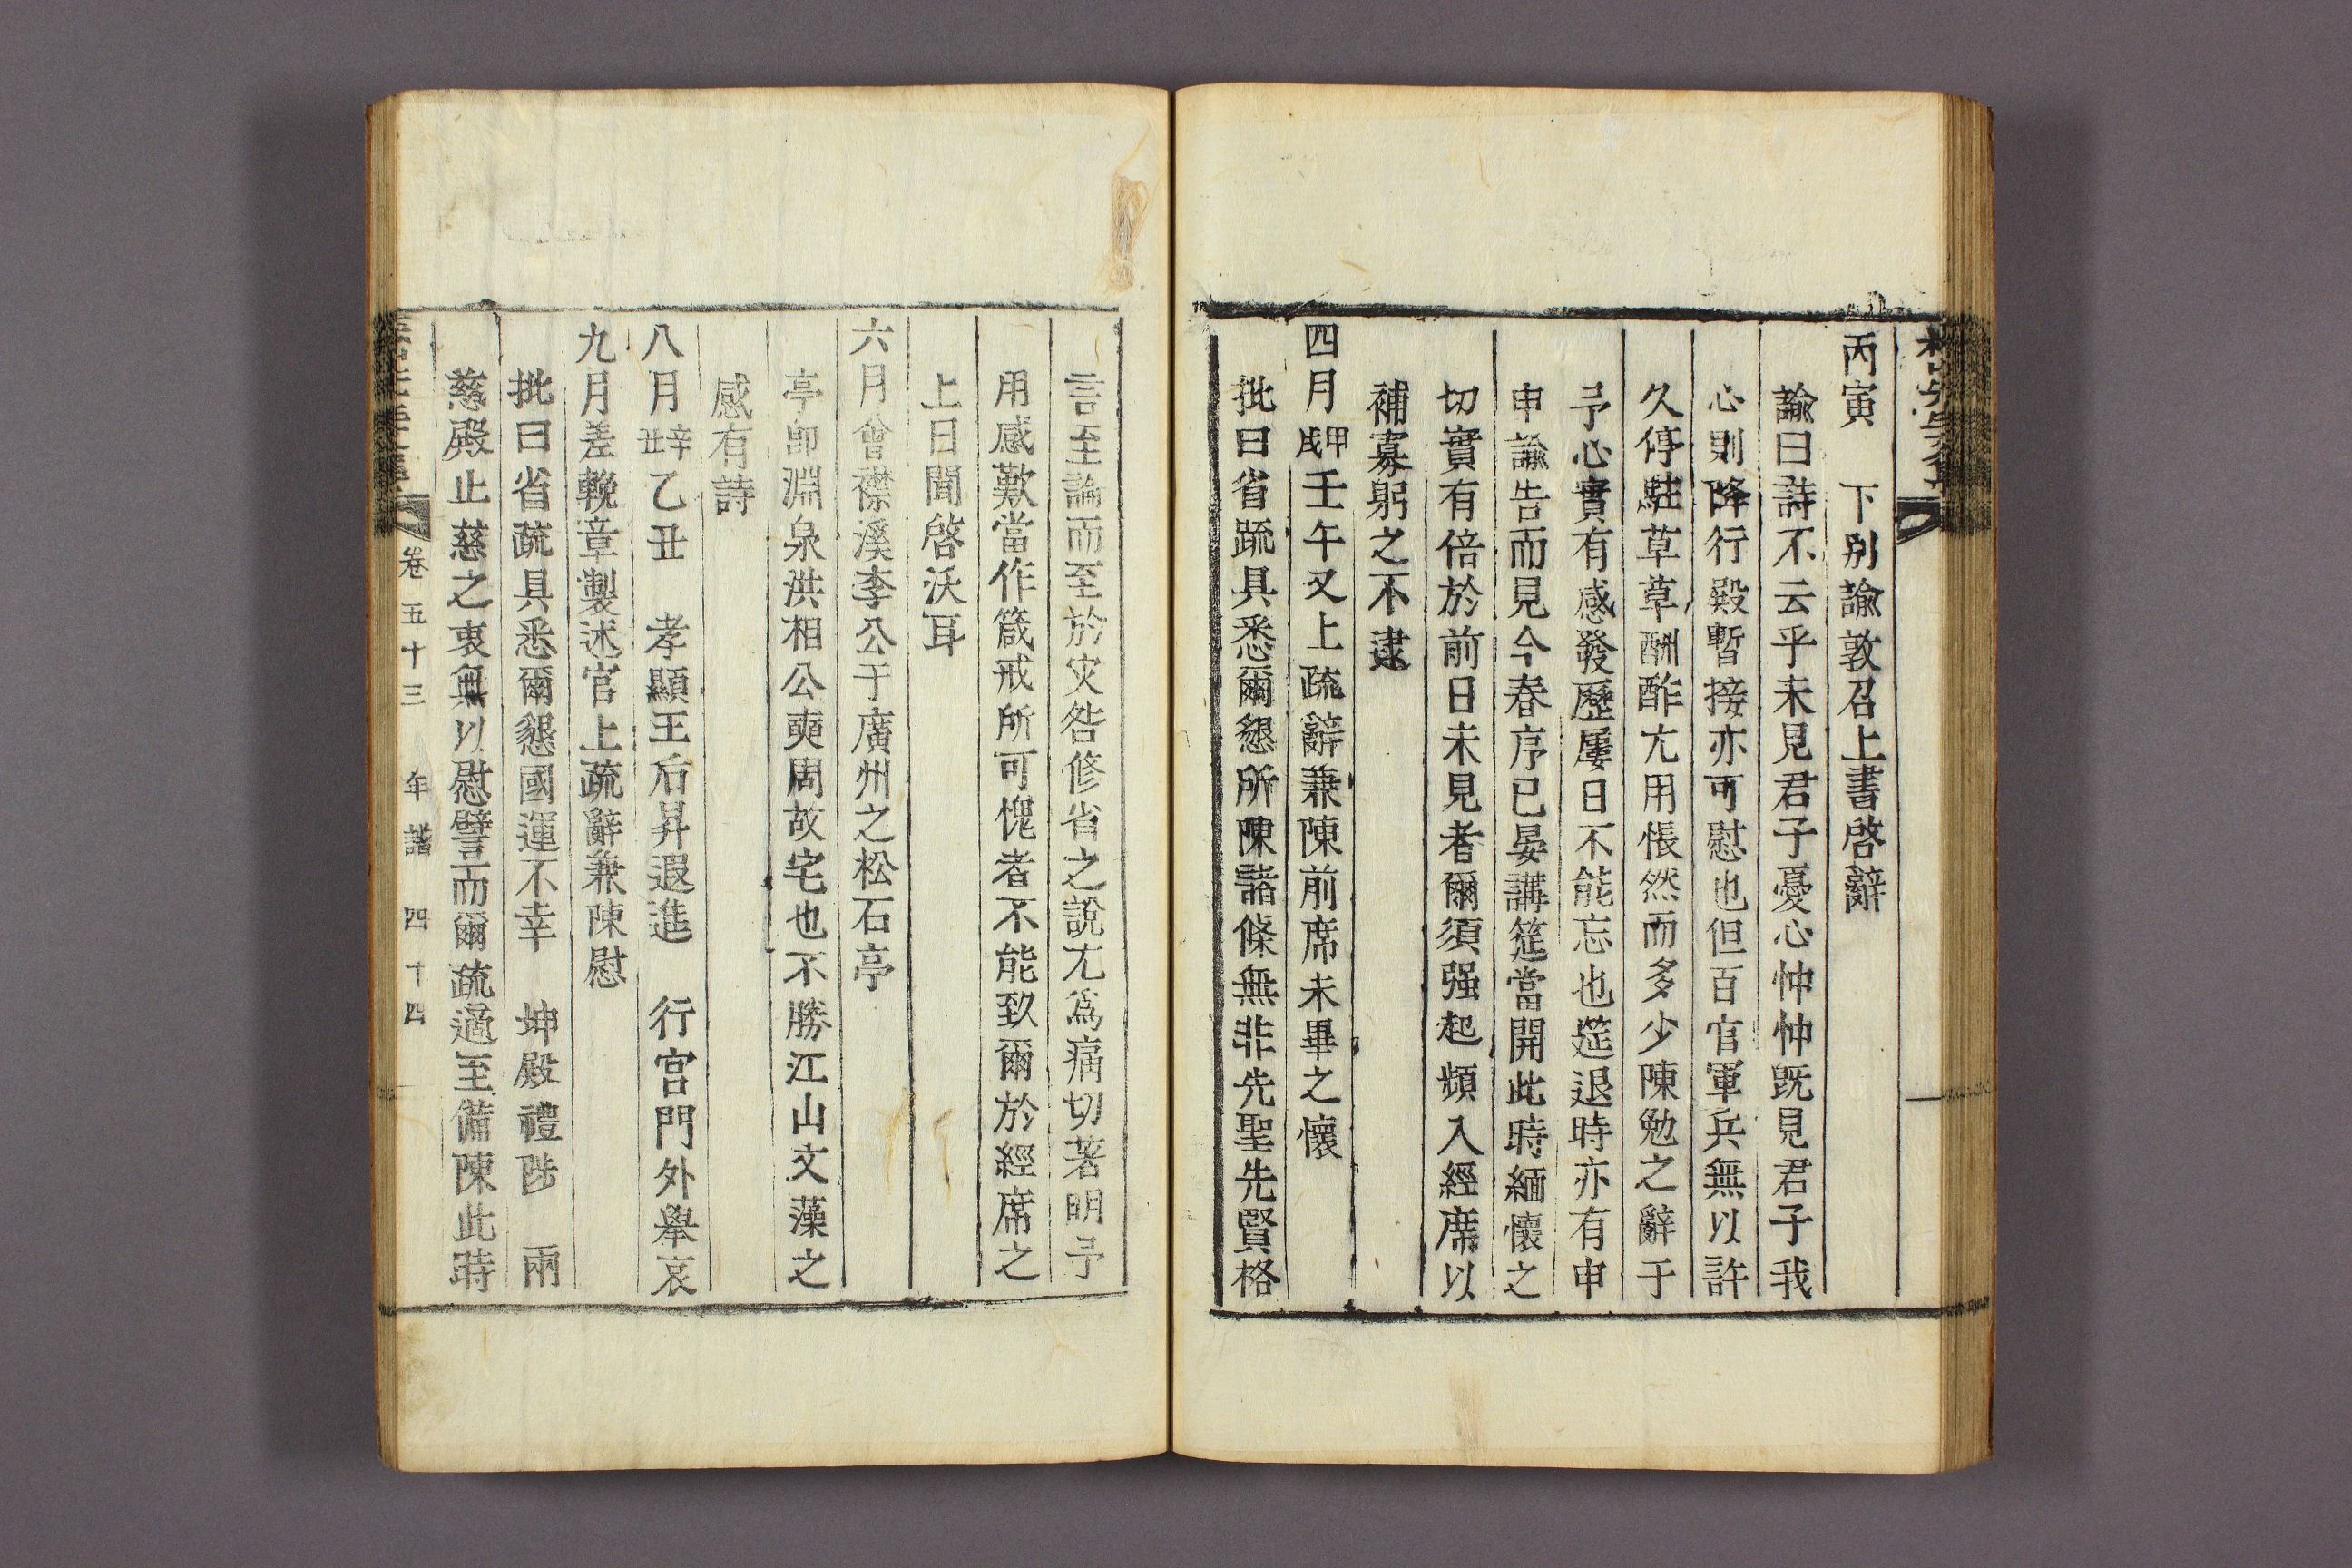 丙寅 下別諭敦召上書啓辭
諭曰詩不云乎未見君子憂心忡忡旣見君子我
心則降行殿暫接亦可慰也但百官軍兵無以許
久停駐草草酬酢尢用悵然而多少陳勉之辭于
予心實有感發歷屢日不能忘也筵退時亦有申
申諭告而見今春序已晏講筵當開此時緬懷之
切實有倍於前日未見者爾須强起頻入經席以
補寡躬之不逮
四月甲戌壬午又上疏辭兼陳前席未畢之懷
批曰省疏具悉爾懇所陳諸條無非先聖先賢格
言至論而至於灾咎修省之說尢爲痛切著明予
用感歎當作箴戒所可愧者不能致爾於經席之
上日聞啓沃耳
六月會襟溪李公于廣州之松石亭
亭卽淵泉洪相公奭周故宅也不勝江山文藻之
感有詩
八月辛丑乙丑 孝顯王后昇遐進 行宮門外擧哀
九月差輓章製述官上疏辭兼陳慰
批曰省疏具悉爾懇國運不幸 坤殿禮陟 兩
慈殿止慈之衷無以慰譬而爾疏適至備陳此時
卷五十三 年譜 四十四